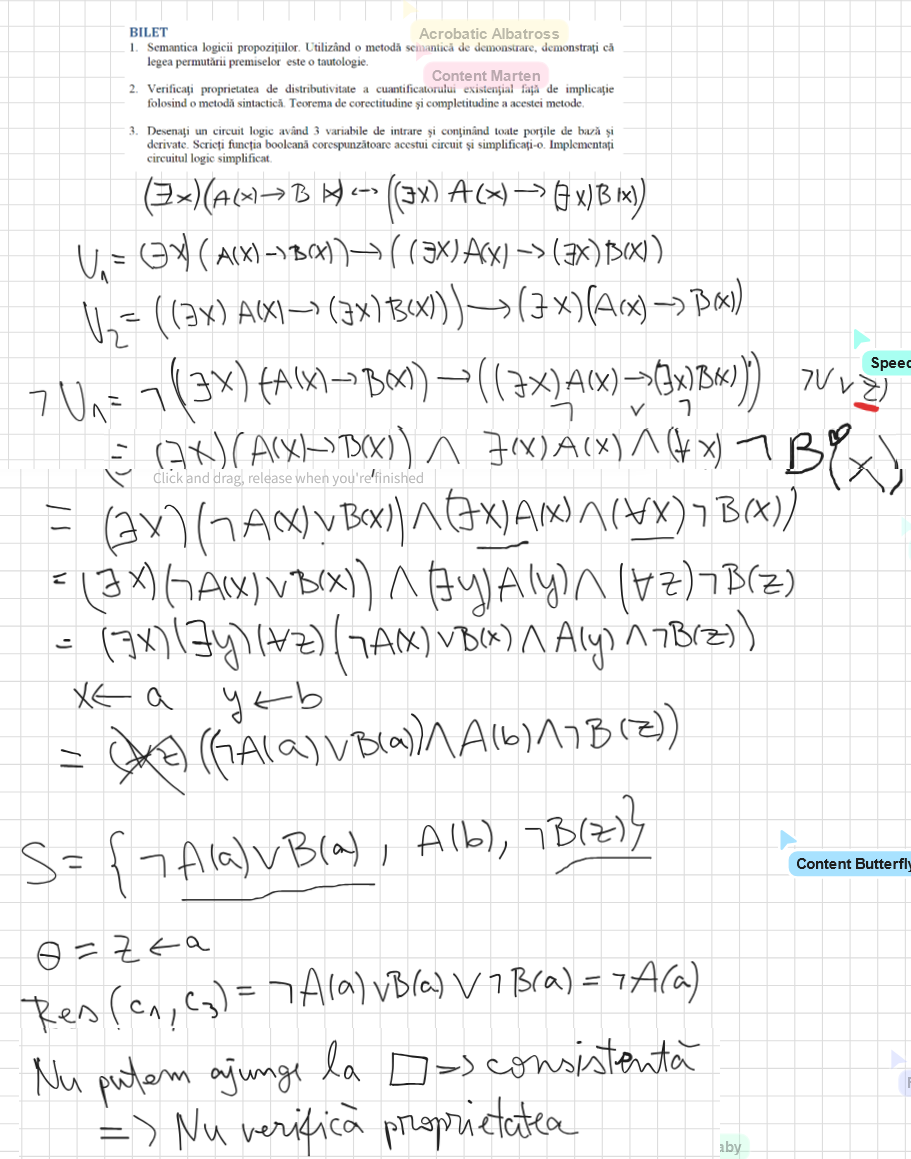 BILET
Acrobatic Albatross
1. Semantica logicii propozițiilor. Utilizând o metodă semantică de demonstrare, demonstrați că
legea permutării premiselor este o tautologie.
Content Marten
2. Verificați proprietatea de distributivitate a cuantificatorului existențial față de implicație
folosind o metodă sintactică. Teorema de corectitudine și completitudine a acestei metode.
3. Desenați un circuit logic având 3 variabile de intrare și conținând toate porțile de bază și
derivate. Scrieți funcția booleană corespunzătoare acestui circuit și simplificați-o. Implementați
circuitul logic simplificat.
(∃x)(A(x)→B(x)) ↔ ((∃x) A(x)→(∃x)B(x))
U₁ = (∃x)(A(x)→B(x))→((∃x)A(x)→(∃x)B(x))
U₂ = ((∃x)A(x)→(∃x)B(x)))→(∃x)(A(x)→B(x))
¬U₁ = ¬((∃x)(A(x)→B(x))→((∃x)A(x)→(∃x)B(x))) ¬U ∨ Z)
¬ ∨ ¬
Speed
= (∃x)(A(x)→B(x)) ∧ ∃(x)A(x)∧(∀x)¬B(x)
Click and drag, release when you're finished
= (∃x)(¬A(x)∨B(x))∧(∃x)A(x)∧(∀x)¬B(x))
= (∃x)(¬A(x)∨B(x)) ∧ (∃y)A(y)∧ (∀z)¬B(z)
= (∃x)(∃y)(∀z)(¬A(x)∨B(x)∧A(y)∧¬B(z))
x←a y←b
= (∀z)((¬A(a)∨B(a))∧A(b)∧¬B(z))
S={¬A(a)∨B(a), A(b), ¬B(z)}
Content Butterfly
θ = z←a
Res(c₁,c₃)=¬A(a)∨B(a)∨¬B(a)=¬A(a)
Nu putem ajunge la □ => consistentă
=> Nu verifică proprietatea
aby